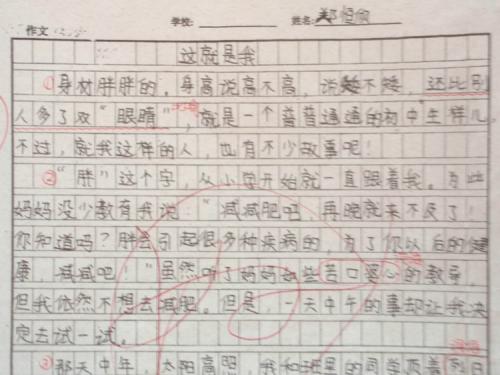 学校: 姓名: 郑恒
作文
这就是我
①身材胖胖的。身高说高不高,说矮不矮,还比别
人多了双“眼睛”,就是一个普普通通的初中生样儿,
不过,就我这样的人,也有不少故事呢!
②“胖”这个字,从小学开始就一直跟着我。为此
妈妈没少教育我说:“减减肥吧,再晚就来不及了!
你知道吗?胖会引起很多种疾病的,为了你以后的健
康,减减吧!”虽然听了妈妈那些苦口婆心的教导,
但我依然不想去减肥。但是,一天中午的事却让我决
定去试一试。
③那天中午,太阳高照,我和班里的同学顶着烈日